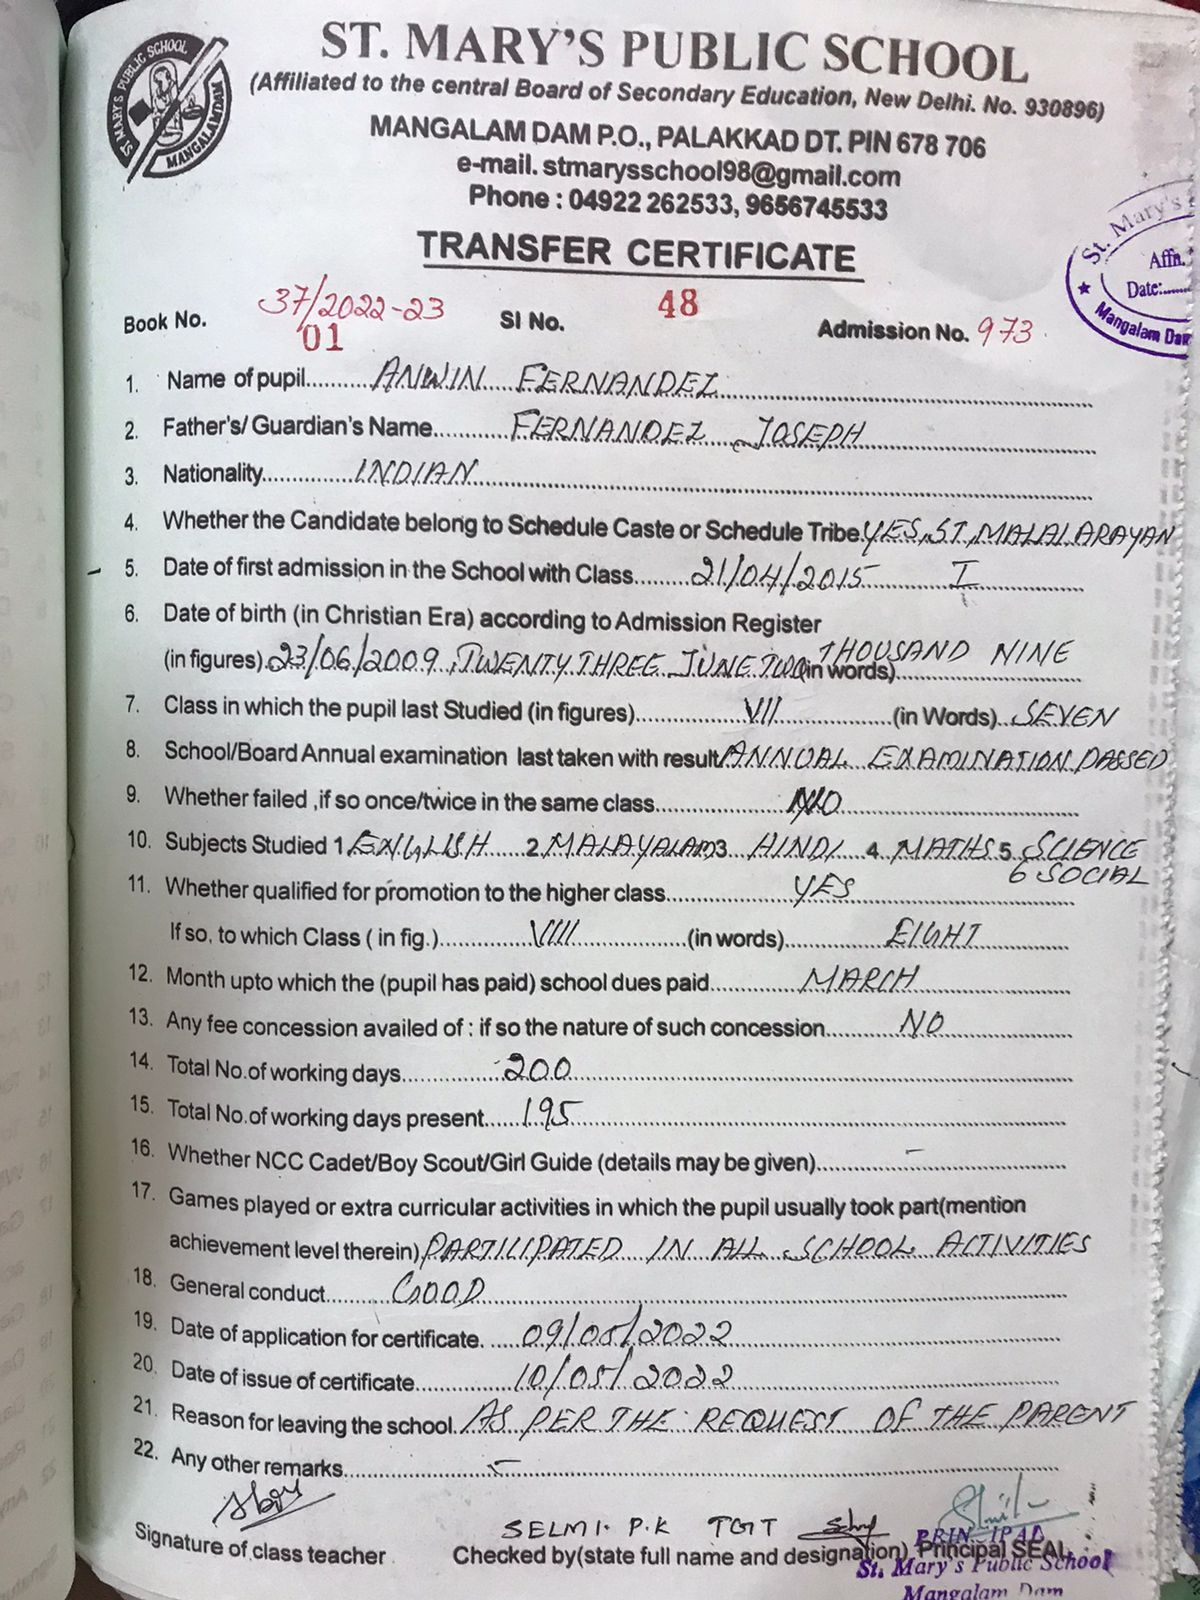 ST. MARY'S PUBLIC SCHOOL
MANGALAMDAM
ST. MARY'S PUBLIC SCHOOL
(Affiliated to the central Board of Secondary Education, New Delhi. No. 930896)
MANGALAM DAM P.O., PALAKKAD DT. PIN 678 706
e-mail. stmarysschool98@gmail.com
Phone : 04922 262533, 9656745533
St. Mary's
Affn.
Date:......
Mangalam Dam
TRANSFER CERTIFICATE
37/2022-23
Book No. 01 SI No. 48 Admission No. 973
1. Name of pupil ANWIN FERNANDEZ
2. Father's/ Guardian's Name FERNANDEZ JOSEPH
3. Nationality INDIAN
4. Whether the Candidate belong to Schedule Caste or Schedule Tribe YES, ST, MALALARAYAN
5. Date of first admission in the School with Class 21/04/2015 I
6. Date of birth (in Christian Era) according to Admission Register
(in figures) 23/06/2009, TWENTY THREE JUNE TWO (in words) THOUSAND NINE
7. Class in which the pupil last Studied (in figures) VII (in Words) SEVEN
8. School/Board Annual examination last taken with result ANNUAL EXAMINATION PASSED
9. Whether failed ,if so once/twice in the same class NO
10. Subjects Studied 1 ENGLISH 2 MALAYALAM 3 HINDI 4 MATHS 5 SCIENCE
6 SOCIAL
11. Whether qualified for promotion to the higher class YES
If so, to which Class ( in fig.) VIII (in words) EIGHT
12. Month upto which the (pupil has paid) school dues paid MARCH
13. Any fee concession availed of : if so the nature of such concession NO
14. Total No.of working days 200
15. Total No.of working days present 195
16. Whether NCC Cadet/Boy Scout/Girl Guide (details may be given) –
17. Games played or extra curricular activities in which the pupil usually took part(mention
achievement level therein) PARTICIPATED IN ALL SCHOOL ACTIVITIES
18. General conduct GOOD
19. Date of application for certificate. 09/05/2022
20. Date of issue of certificate 10/05/2022
21. Reason for leaving the school. AS PER THE REQUEST OF THE PARENT
22. Any other remarks –
SELMI. P.K TGT
Signature of class teacher Checked by(state full name and designation) Principal SEAL
PRINCIPAL
St. Mary's Public School
Mangalam Dam